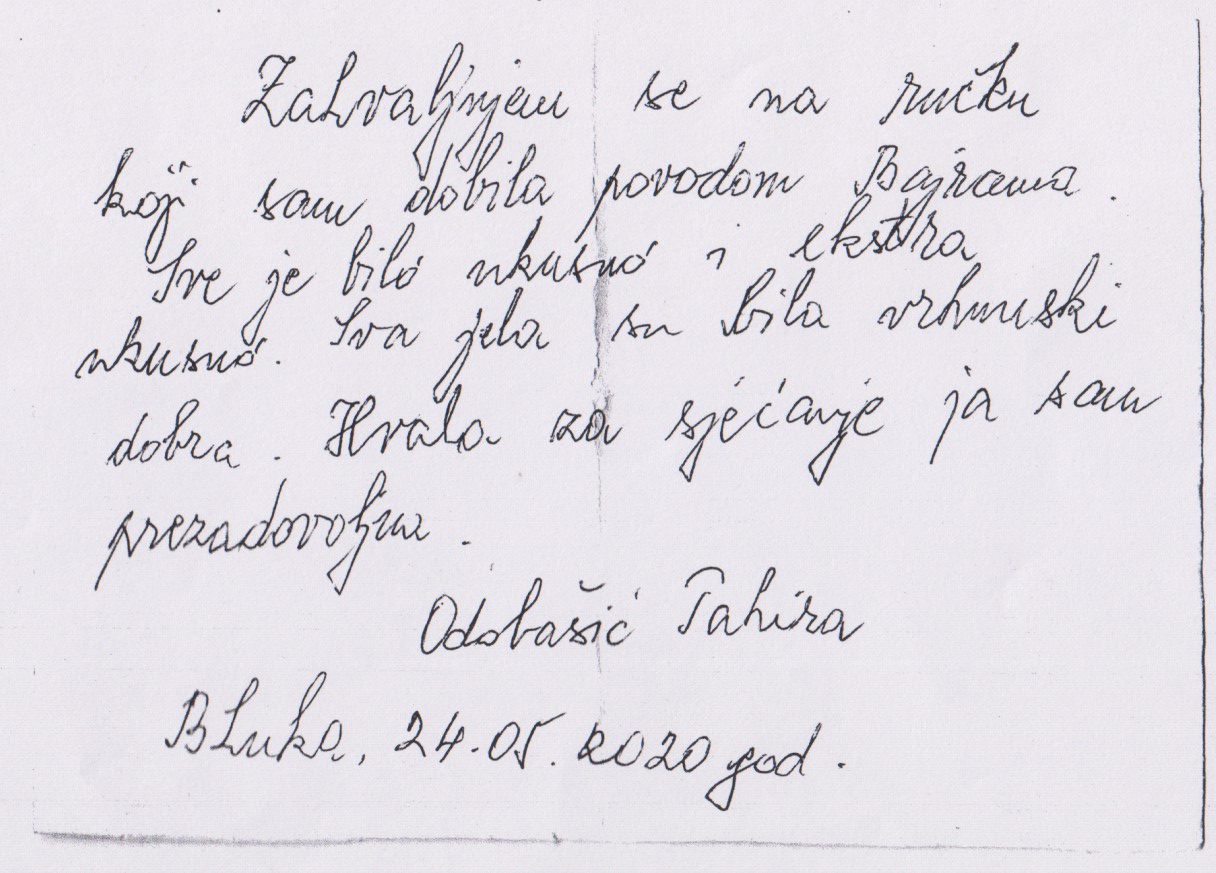 Zahvaljujem se na ručku
koji sam dobila povodom Bajrama.
Sve je bilo ukusno i ekstra
ukusno. Sva jela su bila vrhunski
dobra. Hvala za sjećanje ja sam
prezadovoljna.
Odobašić Tahira
BLuka, 24.05.2020 god.